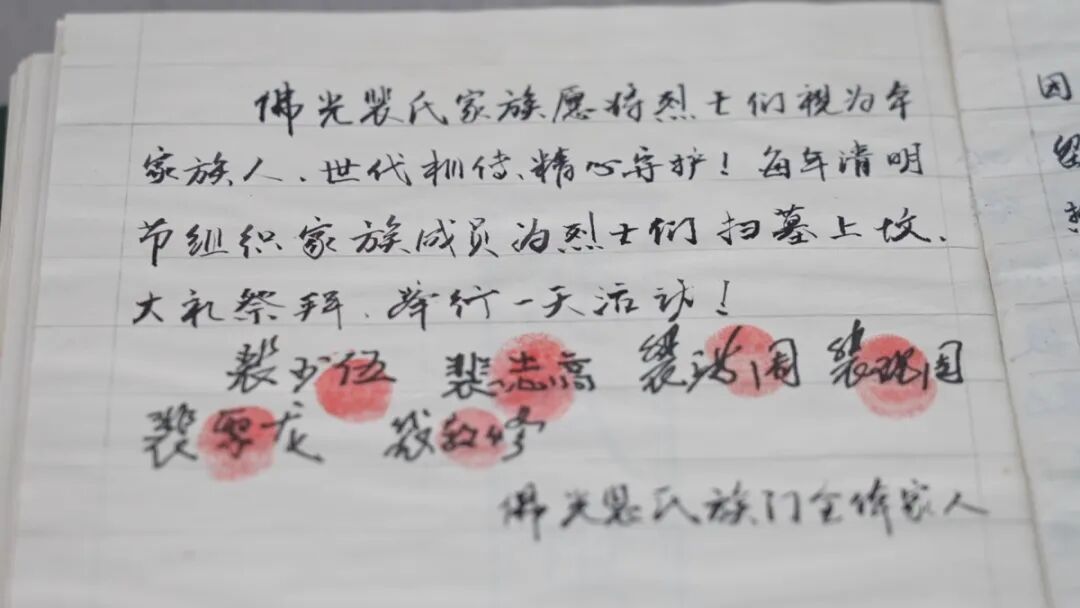 佛光裴氏家族愿将烈士们视为本
家族人、世代相传、精心守护！每年清明
节组织家族成员为烈士们扫墓上坟、
大礼祭拜、举行一天活动！
裴 伍 裴志高 裴 周 裴 周
裴 龙 裴 修
佛光裴氏族门全体家人
因